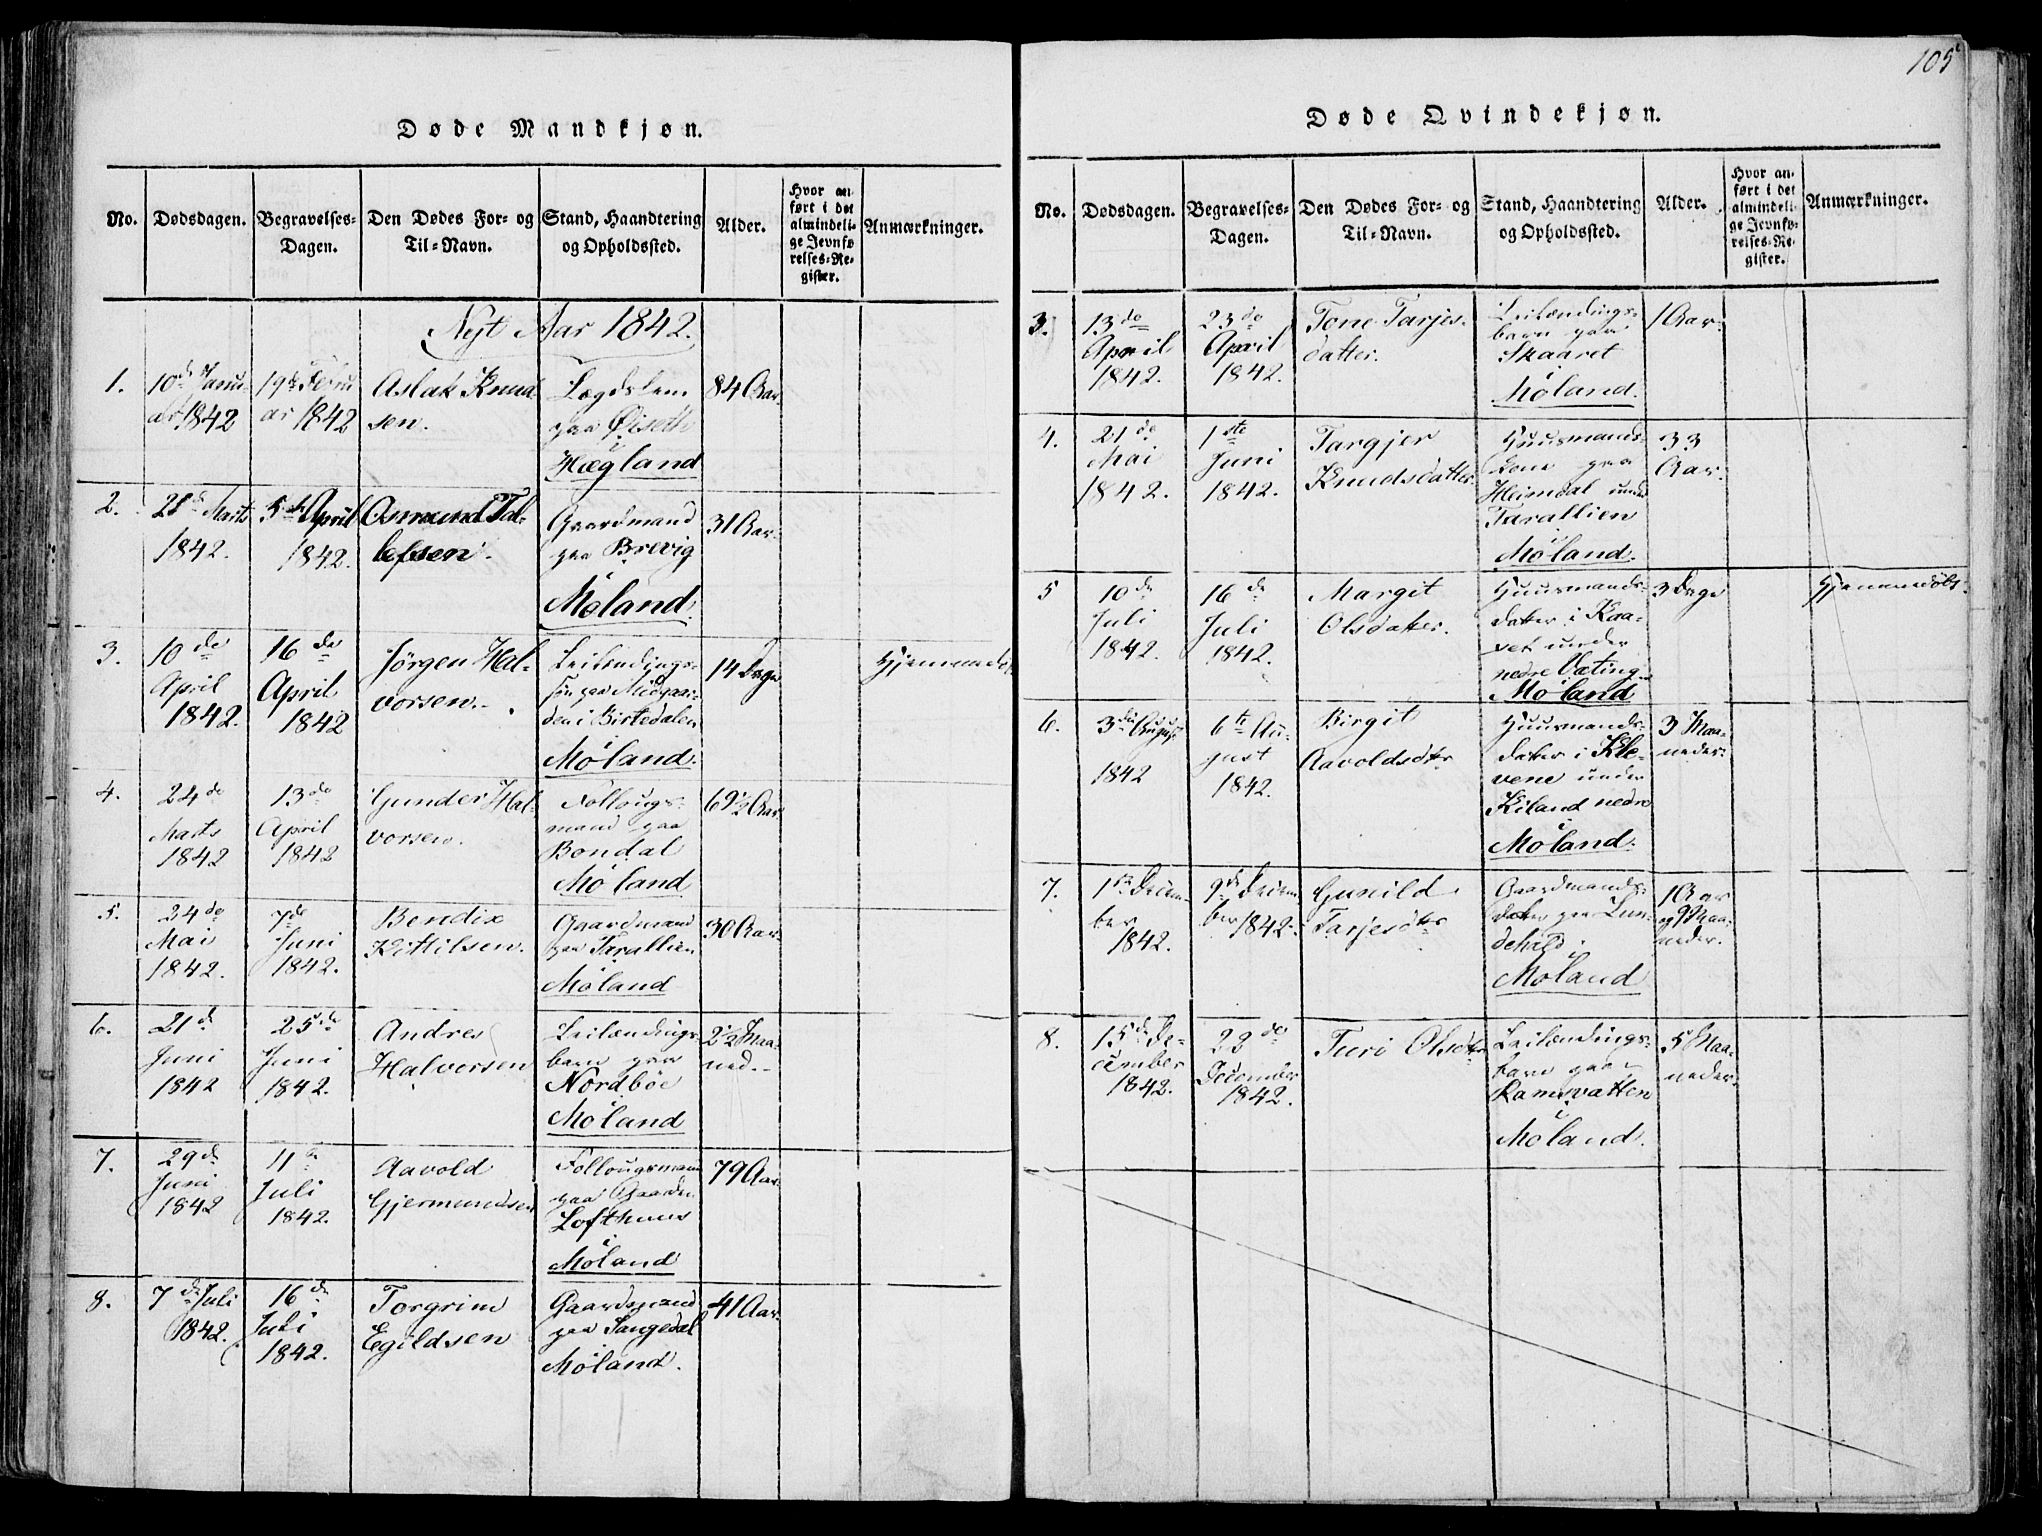 105
Døde Mandkjøn.
No.
Dødsdagen.
Begravelses-
Dagen.
Den Dødes For- og
Til-Navn.
Stand, Haandtering
og Opholdssted.
Alder.
Hvor an-
ført i det
almindeli-
ge Jevnfø
relses-Re-
gister.
Anmærkninger.
Nyt Aar 1842.
1.
10de Janu
ar 1842
19de Febru
ar 1842
Aslak Knud-
sen.
Lægdslem
paa Øiseth
i
Hægland
84 Aar
2.
28de Marts
1842.
5te April
1842.
Osmund Tol-
lefsen.
Gaardmand
paa Brevig
i
Moland.
31 Aar
3.
10de
April
1842.
16de
April
1842
Jørgen Hal-
vorsen.
Leilændings-
søn paa Midgaar-
den i Birtedalen
Moland.
14 Dage
Hjemmedøbt
4.
24de
Marts
1842
13de
April
1842
Gunder Hal-
vorsen.
Follougs-
mand paa
Bondal
i
Moland
69½ Aar
5.
24de
Mai
1842.
7de
Juni
1842.
Bendix
Kittilsen.
Gaardmand
paa Tarallien
i
Moland
30 Aar
6.
21de
Juni
1842
25de
Juni
1842.
Andres
Halvorsen
Leilændings-
barn paa
Nordbøe
i
Moland
2½ Maa-
ned.
7.
29de
Juni
1842
11te
Juli
1842.
Aavold
Gjermundsen
Follougsmand
paa Gaarden
Lofthuus
i
Moland
79 Aar
8.
7de Juli
1842.
16de
Juli
1842.
Torgrim
Egildsen
Gaardmand
paa Sangedal
i
Moland.
41 Aar
Døde Qvindekjøn.
No.
Dødsdagen.
Begravelses-
Dagen.
Den Dødes For- og
Til-Navn.
Stand, Haandtering
og Opholdssted.
Alder.
Hvor an-
ført i det
almindeli-
ge Jevnfø-
relses-Re-
gister.
Anmærkninger.
3.
13de
April
1842.
23de
April
1842.
Tone Tarjes-
datter.
Leilændings-
barn paa
Skaaret
i
Moland.
1 Aar.
4.
21de
Mai
1842.
1ste
Juni
1842.
Targjer
Knudsdatter
Huusmands-
kone paa
Heimdal under
Tarallien
i
Moland.
33
Aar.
5
10de
Juli
1842.
16de
Juli
1842.
Margit
Olsdatter.
Huusmands-
datter i Kaa-
set under
nedre Væting
Moland
3 Dage
Hjemmedøbt.
6.
3die August
1842
6te Au-
gust
1842.
Birgit
Aavoldsdtr
Huusmands-
datter i Kle-
vene under
Kiland nedre
i
Moland.
3 Maa-
neder.
7.
1ste Decem-
ber
1842.
9de Decem-
ber 1842.
Gunild
Tarjesdtr
Gaardmands-
datter paa Lun-
dekild
i
Moland
1 Aar
og 9 Maa-
neder.
8.
15de De-
cember
1842.
22de
December
1842.
Turi Olsdtr
Leilændings-
barn paa
Ramsvatten
i
Moland.
5 Maa-
neder.